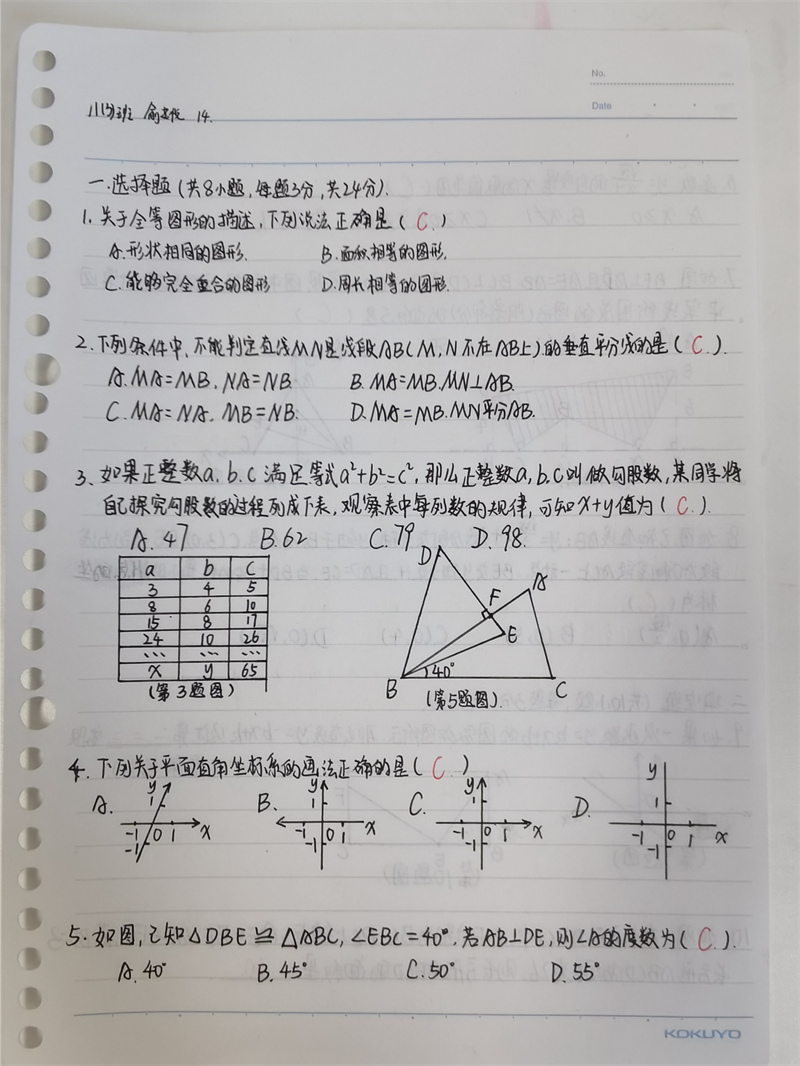 No.
Date
14.
一.选择题(共8小题,每题3分,共24分).
1.关于全等图形的描述,下列说法正确是( C )
A.形状相同的图形. B.面积相等的图形.
C.能够完全重合的图形 D.周长相等的图形.
2.下列条件中,不能判定直线MN是线段AB(M,N不在AB上)的垂直平分线的是( C ).
A.MA=MB,NA=NB. B.MA=MB.MN⊥AB.
C.MA=NA,MB=NB. D.MA=MB.MN平分AB.
3.如果正整数a.b.c满足等式a²+b²=c²,那么正整数a,b,c叫做勾股数,某同学将
自己探究勾股数的过程列成下表,观察表中每列数的规律,可知x+y值为( C ).
A.47 B.62 C.79 D.98.
a b c
3 4 5
8 6 10
15 8 17
24 10 26
.... .... ....
x y 65
(第3题图)
D
F
A
E
B
40°
C
(第5题图).
4.下列关于平面直角坐标系的画法正确的是( C )
A. y 1 -1 0 1 x -1
B. y 1 -1 0 1 x -1
C. y 1 -1 0 1 x -1
D. y 1 -1 0 1 x -1
5.如图,已知△DBE≌△ABC,∠EBC=40°.若AB⊥DE,则∠A的度数为( C ).
A.40° B.45° C.50° D.55°
KOKUYO